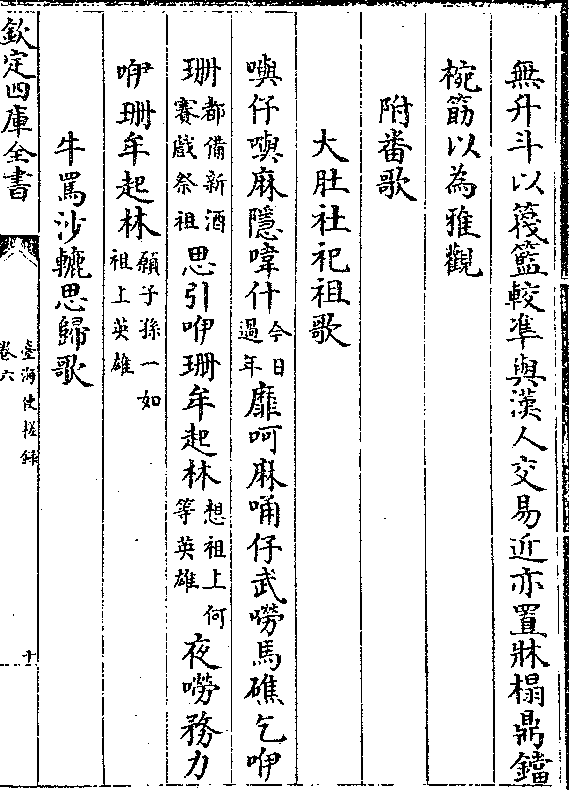 無升斗以篾籃較準與漢人交易近亦置牀榻鼎鐺
椀筯以為雅觀
附番歌
大肚社祀祖歌
嗅仔嗅麻隱喡什今日過年靡呵麻㖡仔武嘮馬礁乞咿
珊都備新酒賽戲祭祖思引咿珊牟起林想祖上何等英雄夜嘮務力
咿珊牟起林願子孫一如祖上英雄
牛罵沙轆思歸歌
欽定四庫全書
臺海使槎錄
卷六
十